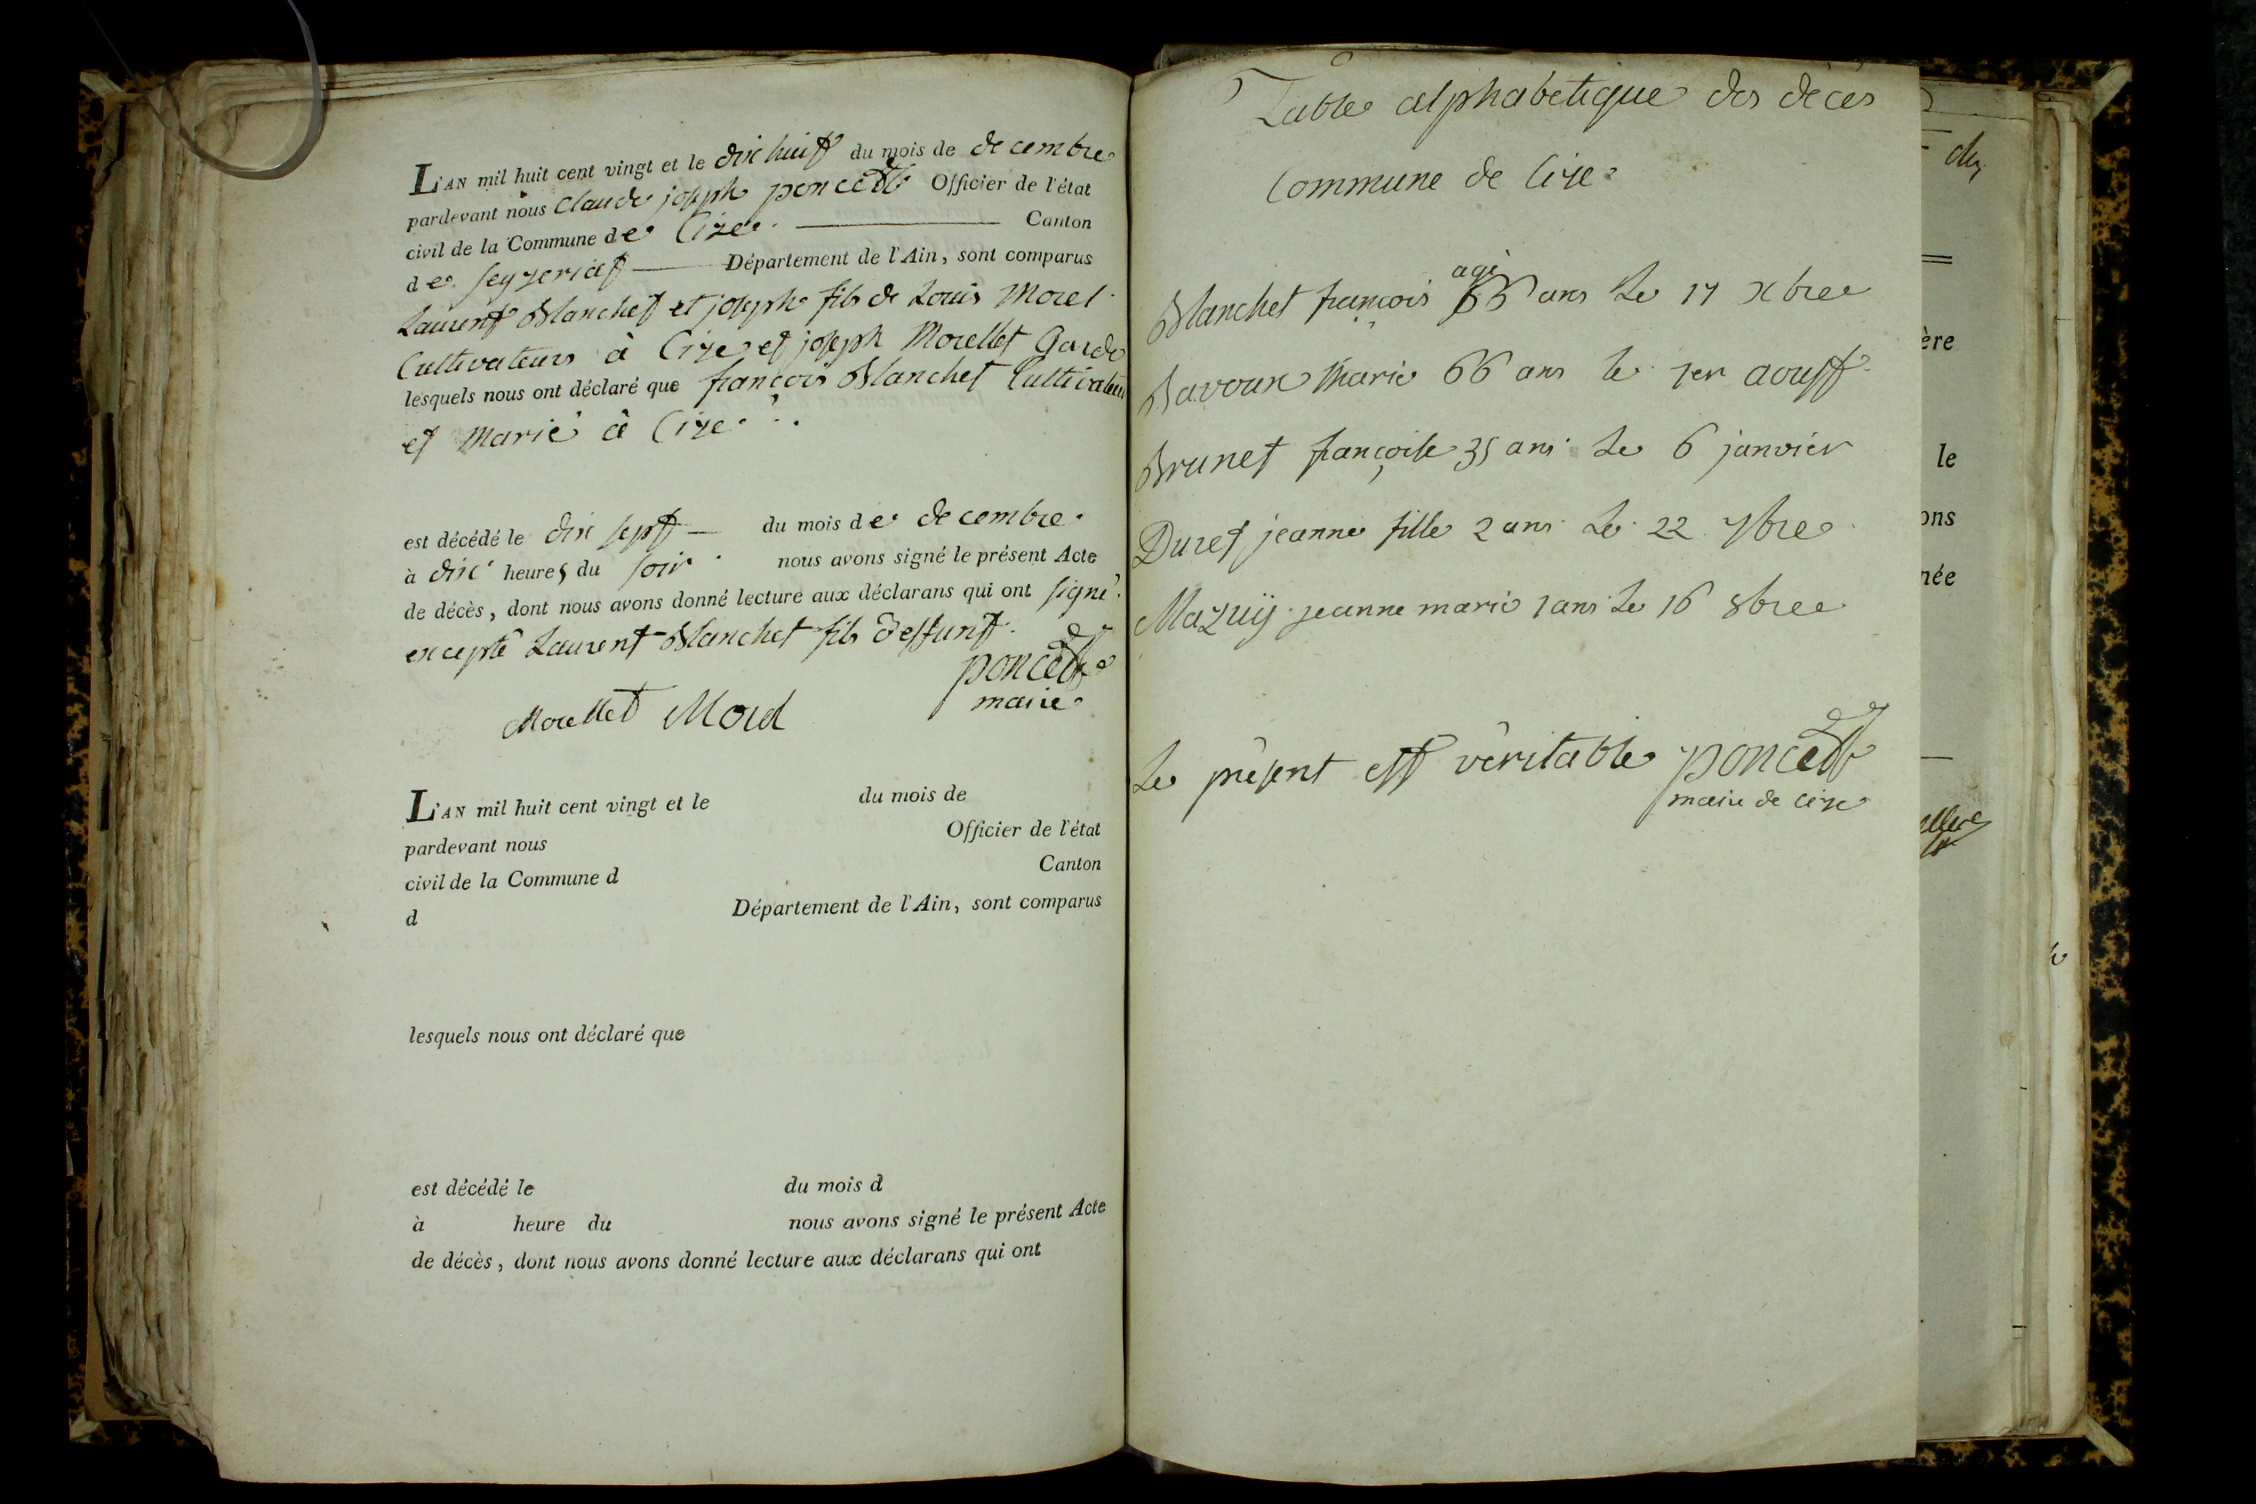 L'AN mil huit cent vingt et le dix huit du mois de decembre
pardevant nous Claude joseph poncet Officier de l'état
civil de la Commune de Cize. Canton
de Seyzeriat Département de l'Ain, sont comparus
Laurent Blanchet et joseph fils de Louis Morel
Cultivateurs à Cize et joseph Morellet Garde
lesquels nous ont déclaré que francois Blanchet Cultivateur
et Marié à Cize.
est décédé le dix sept du mois de decembre.
à dix heures du soir nous avons signé le présent Acte
de décès, dont nous avons donné lecture aux déclarans qui ont signé.
excepté Laurent Blanchet fils deffunt.
poncet
maire
Morellet Morel
L'AN mil huit cent vingt et le du mois de
pardevant nous Officier de l'état
civil de la Commune d Canton
d Département de l'Ain, sont comparus
lesquels nous ont déclaré que
est décédé le du mois d
à heure du nous avons signé le présent Acte
de décès, dont nous avons donné lecture aux déclarans qui ont
Table alphabetique des décès
Commune de Cize
agé
Blanchet francois 66 ans Le 17 xbre
Bavoux Marie 66 ans le 1er aoust
Brunet françoise 35 ans Le 6 janvier
Duret jeanne fille 2 ans Le 22 7bre
Mazuÿ jeanne marie 1 ans Le 16 8bre
Le présent est véritable poncet
maire de Cize
du
ère
le
ons
née